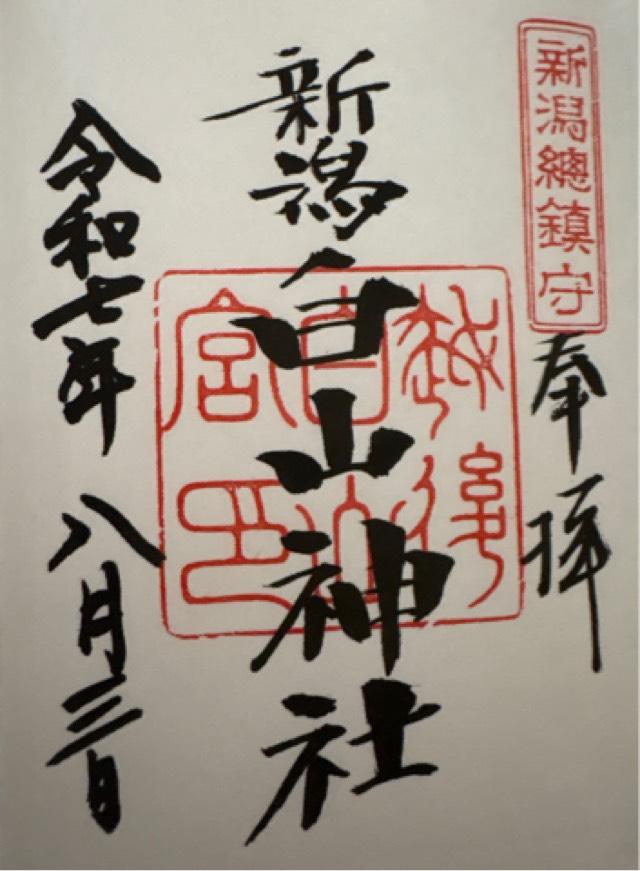 新潟總鎮守
奉拝
新潟白山神社
越後
白山
宮印
令和七年 八月三日